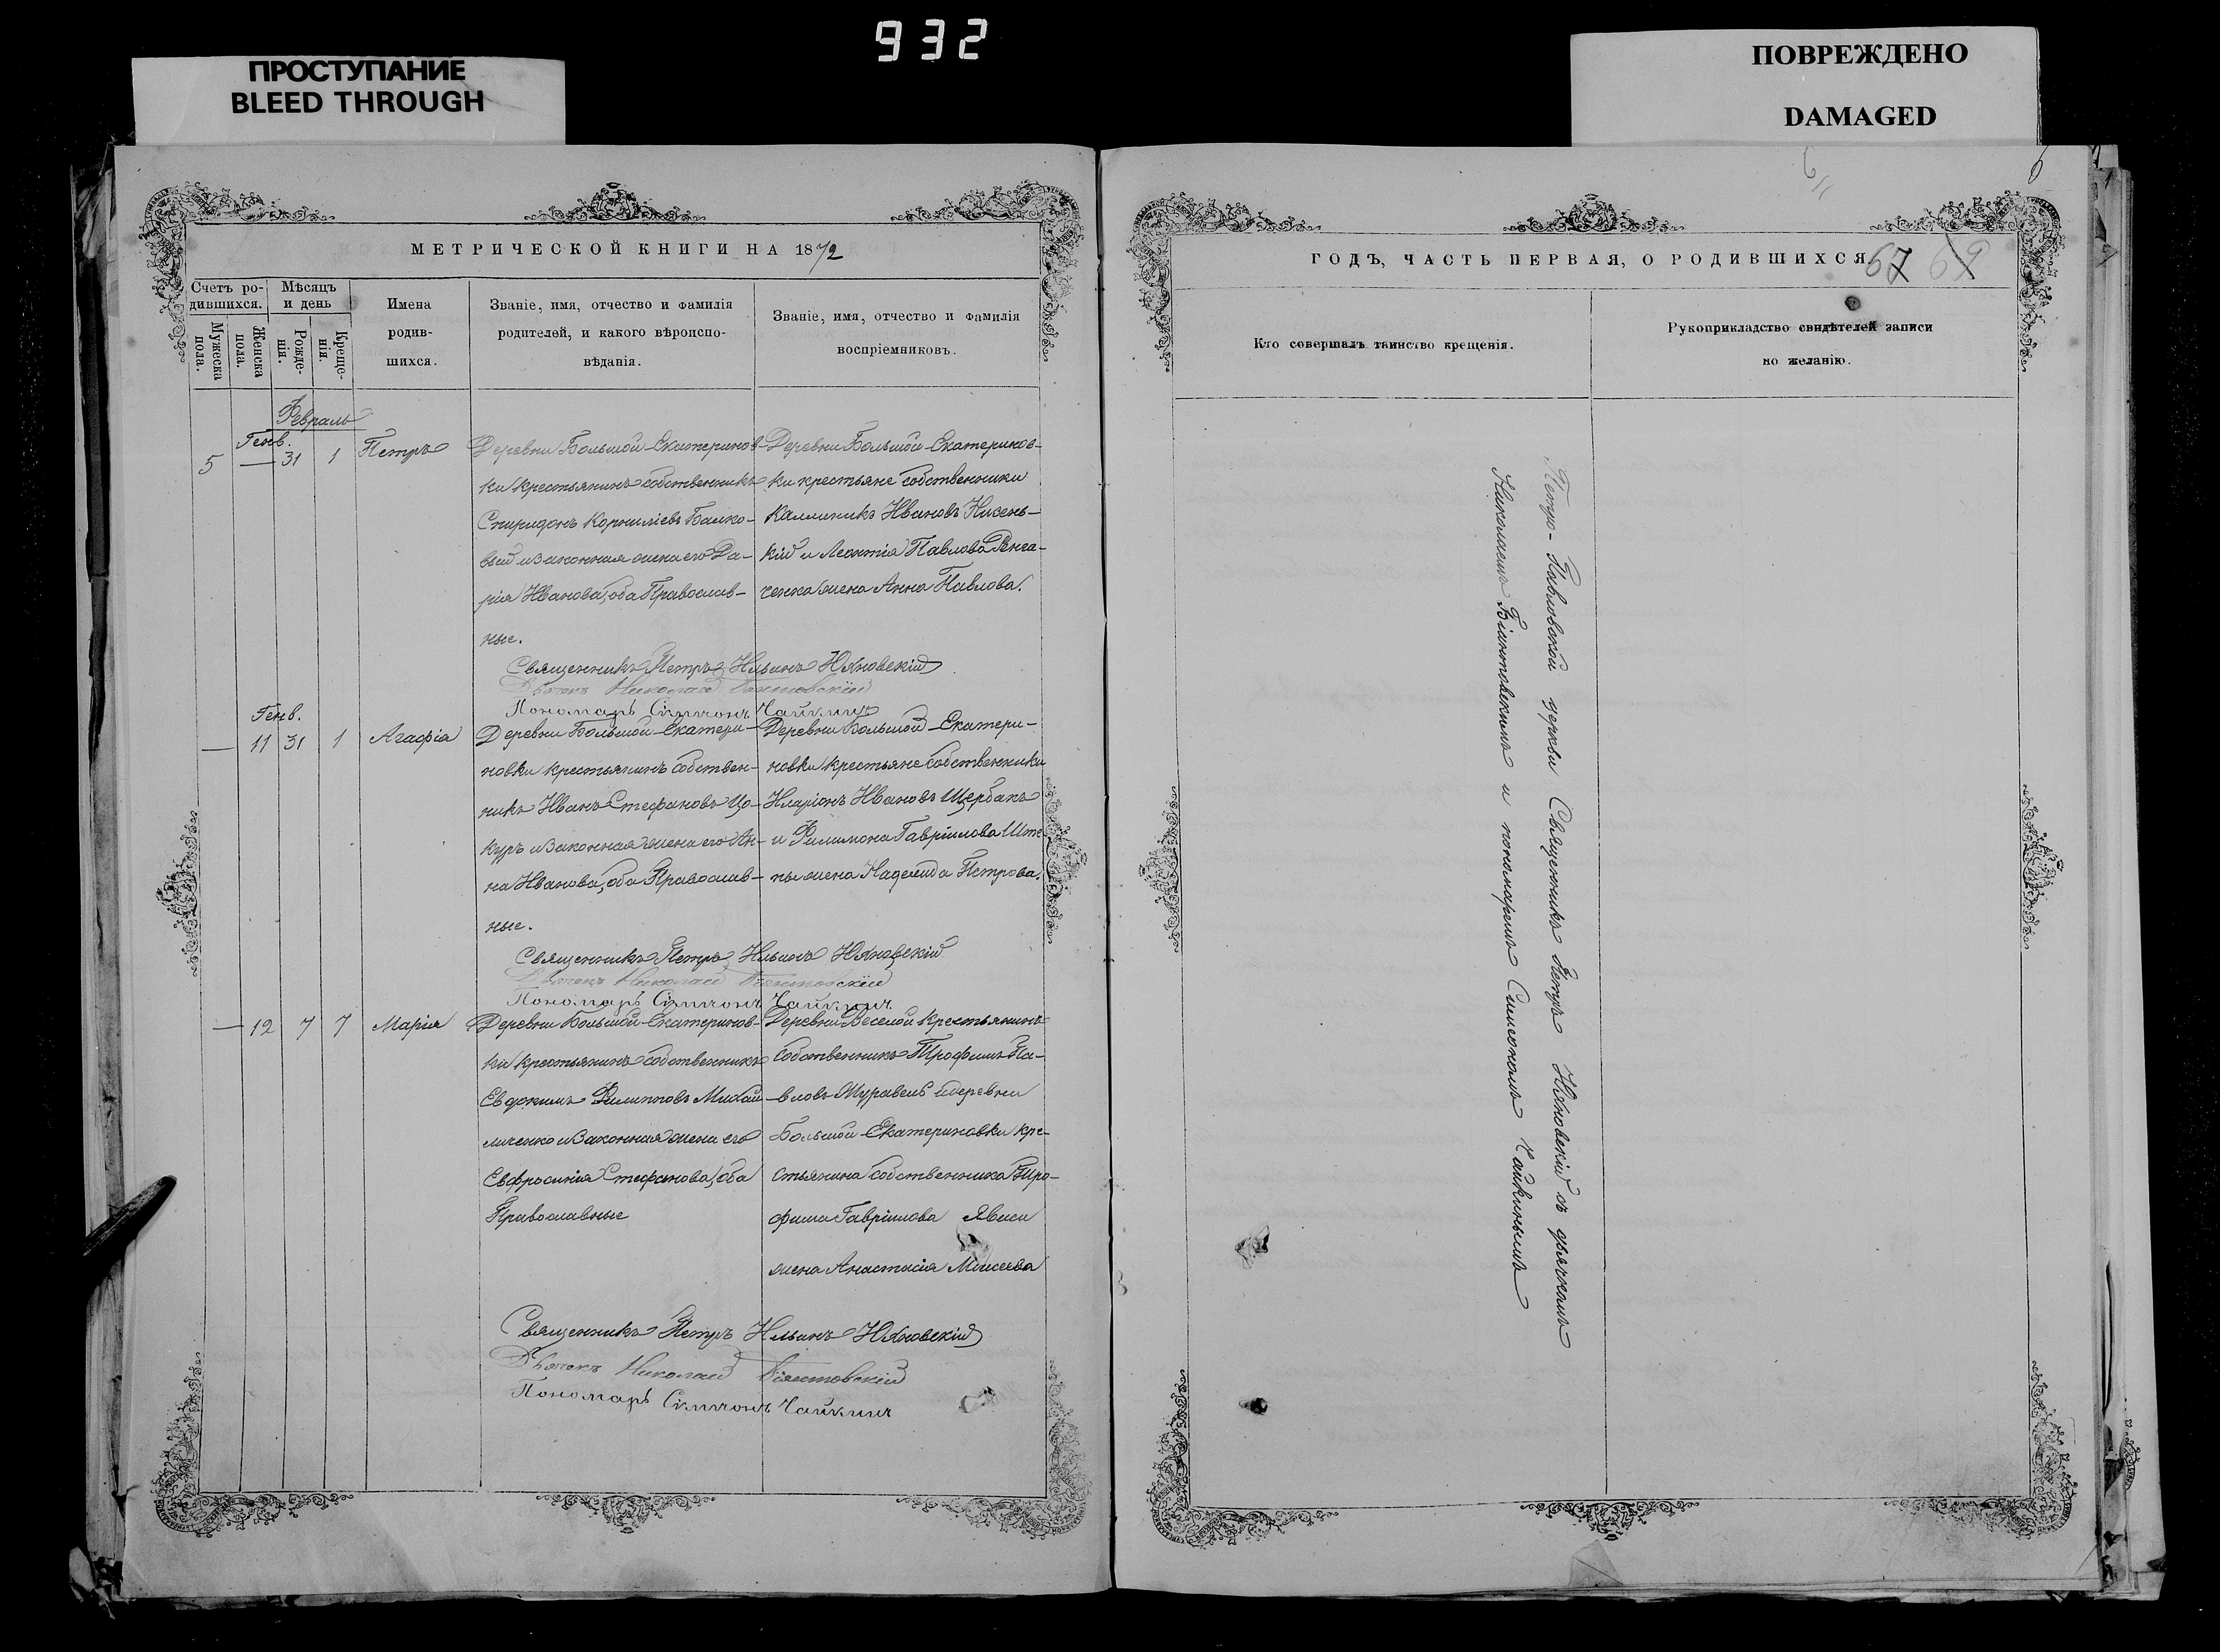 932
ПРОСТУПАНИЕ
BLEED THROUGH
ПОВРЕЖДЕНО
DAMAGED
МЕТРИЧЕСКОЙ КНИГИ НА 1872
Счетъ ро-
дившихся.
Мужеска
пола.
Женска
пола.
Мѣсяцъ
и день
Рожде-
нія.
Креще-
нія.
Имена
родив-
шихся.
Званіе, имя, отчество и фамилія
родителей, и какого вѣроиспо-
вѣданія.
Званіе, имя, отчество и фамилія
воспріемниковъ.
Февраль
Генв.
5 — 31 1 Петръ
Деревни Большой-Екатеринов-
ки крестьянинъ собственникъ
Спиридонъ Корниліевъ
и законная жена его Да-
рія Иванова, оба Православ-
ные.
Деревни Большой-Екатеринов-
ки крестьяне собственники
Каллиникъ Ивановъ Низень-
кій и Леонтія Павлова
жена Анна Павлова.
Священникъ Петръ Ильинъ
Дьячекъ Николай Біантовскій
Пономарь Симеонъ Чайкинъ
Генв.
— 11 31 1 Агафія
Деревни Большой-Екатери-
новки крестьянинъ собствен-
никъ Иванъ Стефановъ Цо-
куръ и законная жена его Ан-
на Иванова, оба Православ-
ные.
Деревни Большой-Екатери-
новки крестьяне собственники
Иларіонъ Ивановъ Щербакъ
и Филимона Гавріилова
жена Надежда Петрова.
Священникъ Петръ Ильинъ
Дьячекъ Николай Біантовскій
Пономарь Симеонъ Чайкинъ
— 12 7 7 Марія
Деревни Большой-Екатеринов-
ки крестьянинъ собственникъ
Евдокимъ Филипповъ Михай
личенко и законная жена его
Евфросинія Стефанова, оба
Православные
Деревни Веселой крестьянинъ
собственникъ Трофимъ Па-
вловъ Журавель и деревни
Большой-Екатериновки кре-
стьянина собственника Тро-
фима Гавріилова
жена Анастасія Моисеева
Священникъ Петръ Ильинъ
Дьячекъ Николай Біантовскій
Пономарь Симеонъ Чайкинъ
ГОДЪ, ЧАСТЬ ПЕРВАЯ, О РОДИВШИХСЯ
67 69
Кто совершалъ таинство крещенія.
Рукоприкладство свидѣтелей записи
по желанію.
Петро-Павловской церкви Священникъ Петръ съ дьячкомъ
Николаемъ Біантовскимъ и пономаремъ Симеономъ Чайкинымъ